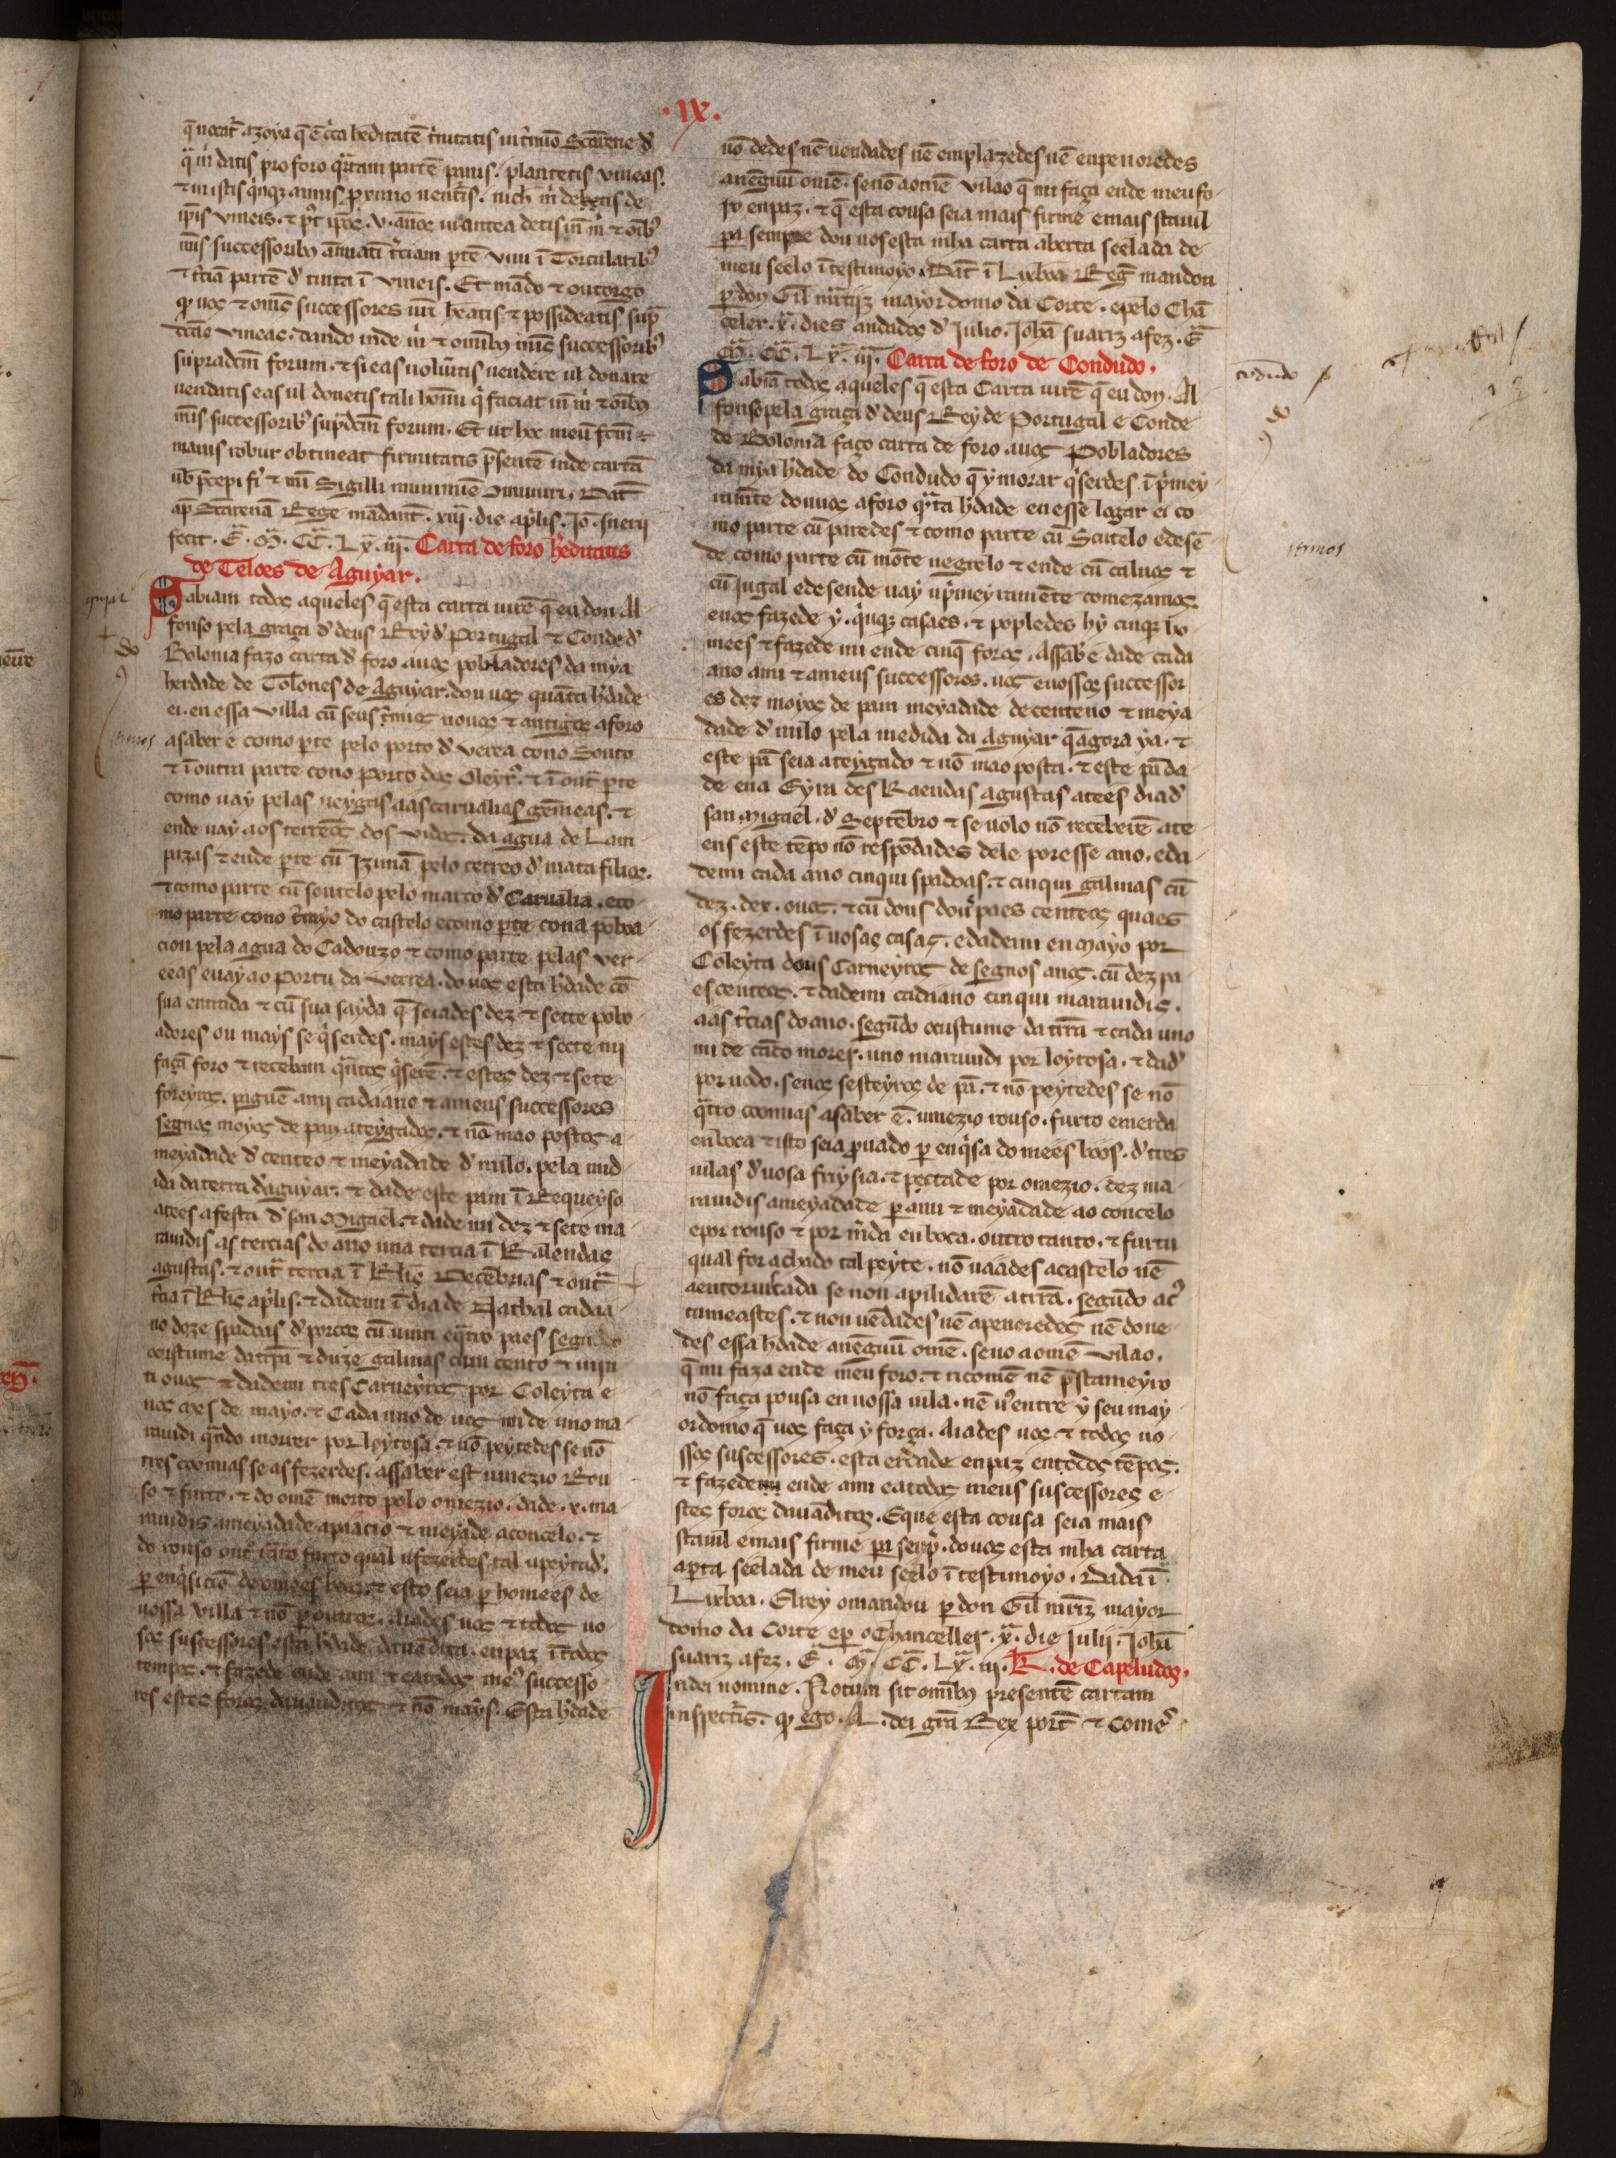 ·IX·
q̄ uocat̃ azoya q̄ ē c̃ca hẽditatē t̃nitatis in t̃mío Scãrene d̕
q̃ m̃ datis pro foro q̃rtam partē panis. plantetis vineas.
⁊ in istis q̃nq; annis p̃ximo uent̃is. nich̃ m̃ detis de
ip̃is vineis. ⁊ p̃t ip̃os. v. ãnos inantea detis m̃ ⁊ oĩb᷒
m̃is successorib᷒ ãnuatĩ t̃ciam ptē vini ĩ Torcularib᷒
⁊ t̃ciã partē d̕ tinta ĩ vineis. Et mãdo ⁊ outorgo
q̕ uos ⁊ om̃s successores ur̃i h̃eatis ⁊ possideatis sup̃
dc̃as vineas. dando inde m̃ ⁊ omĩb᷒ meis successorib᷒
supradc̃m forum. ⁊ si eas uoluĩtis uendere ul donare
uendatis eas ul donetis tali homĩ q̃ faciat m̃ ⁊ oĩb᷒
m̃is successorib᷒ sup̃dc̃m forum. Et ut hoc meũ fc̃m
maius robur obtineat firmitatis p̃sentē inde cartã
uob̃ p̃cepi fi̕ ⁊ m̃i Sigilli munimĩe cõmuniri. Dat̃
ap̃ Scãrenã Rege mãdant̃. xiij. die ap̃lis. Jo. suerii
fecit. E̊. M̊. CC̊. Lx̊. iij̊. Carta de foro hẽditatis
de Telões de Aguyar.
Sabiam todos aqueles q̄ esta carta uirē q̄ eu don Al
fonso pela graça d̕ deus Rey d̕ Portugal ⁊ Conde d̕
Bolonia fazo carta d̕ foro auos pobladores da mya
herdade de Tolones de Aguyar. dou uos quãta h̕dade
ei en essa villa cũ seus t̃mios nouos ⁊ antigos aforo
asaber e como pte pelo porto d̕ verea cono Souto
⁊ ĩ outra parte cono porto dos Oleyr̃. ⁊ ĩ out̃ pte
como uay pelas ueygas aas carualias gẽmeas. ⁊
ende uay aos terreos dos vidos. da agua de Lam
pazas ⁊ ende pte cũ Izumã pelo terreo d̕ mata filios.
⁊ como parte cũ soutelo pelo marco d̕ Carualia. eco
mo parte cono t̃myo do castelo ecomo pte cona poboa
cion pela agua do Cadouzo ⁊ como parte pelas ver
eeas euay ao portu da verrea. do uos esta h̕dade cõ
sua entrada ⁊ cũ sua sayda q̄ seiades dez ⁊ sette pobo
adores ou mays se q̃serdes. mays estes dez ⁊ sette mi
fagã foro ⁊ recebam q̃ntos q̃serē. ⁊ estes dez ⁊ sete
foreyros. paguē ami cadaano ⁊ ameus successores
segnos moyos de pan ateygados. ⁊ nõ mao postos a
meyadade d̕ centeo ⁊ meyadade d̕ milo. pela med
ida da terra d̕ aguyar. ⁊ dade este pam ĩ Requeyxo
atees afesta d̕ san Migael. ⁊ dade mi dez ⁊ sete ma
rauidis as tercias do ano una tercia ĩ Kalendas
agustas. ⁊ out̃ tercia ĩ Kl̃is Decẽbrias ⁊ out̃
t̃cia ĩ Kl̃is ap̃lis. ⁊ dademi ĩ dia de Nathal cadaa
no doze spadoas d̕ porcos cũ uinti eq̃tro paes segundo
costume da t̃ra ⁊ duze galinas cum cento ⁊ uin
ti ouos ⁊ dademi tres Carneyros por Coleyta e
nos oxes de mayo. ⁊ Cada uno de uos mi de uno ma
rauidi q̃ndo morrer por loytosa. ⁊ nõ peytedes se nõ
tres coomias se as fezerdes. assaber est omezio Rou
so ⁊ furto. ⁊ do omē morto polo omezio. dade. x. ma
rauidis ameyadade apaacio ⁊ meyade aconcelo. ⁊
do rouso out̃ tãto furto qual ufezerdes. tal upeytad̕.
p enq̃siciõ de omees boos ⁊ esto seia p homees de
uossa villa ⁊ nõ p outros. Aiades uos ⁊ todos uo
sos successores esta h̕dade dauãdita. enpaz ĩ todos
tempos. ⁊ fazede ende ami ⁊ eatodos me᷒ successo
res estes foros dauanditos ⁊ nõ mays. Esta h̕dade
nõ dedes nē uendades nē emplazedes nē enpenoredes
anẽguũ omē. senõ aomē vilao q̄ mi faça ende meu fo
ro enpaz. ⁊ q̄ esta cousa seia mais firme emais stauil
pa sempre dou uos esta mha carta aberta seelada de
meu seelo ĩ testimoyo. Dat̃ ĩ Lixboa Reg̃ mandou
p don Gil mr̃tijz mayordomo da Corte. epelo Chã
celer. x̊. dies andados d̕ Julio. Johã suariz afez. E̊
M̊. CC̊. Lx̊. iij̊. Carta de foro de Condudo.
Sabiã todos aqueles q̄ esta Carta uirē q̄ eu don. Al
fonso pela graça d̕ deus Rey de Portugal e Conde
de Bolonia faço carta de foro auos Pobladores
da mya h̕dade do Condudo q̄ y morar q̃serdes. ĩ p̃mey
ramẽte douuos aforo q̃nta h̕dade en esse logar ei co
mo parte cũ paredes ⁊ como parte cũ Scutelo edesē
de como parte cũ mõte negrelo ⁊ ende cũ caluos ⁊
cũ Iugal edesende uay up̃meyramẽte comezamos.
euos fazede y. q̃nq; casaes. ⁊ popledes hy cinq; ho
mees ⁊ fazede mi ende cinq̄ foros. Assab̕ e dade cada
ano ami ⁊ ameus successores. uos euossos successor
es dez moyos de pam meyadade decenteno ⁊ meya
dade d̕ milo pela medida da Aguyar q̄ agora ya. ⁊
este pã seia ateygado ⁊ nõ mao posta. ⁊ este pã da
de ena Eyra des Kaendas agustas atees dia d̕
san Migael. d̕ Septẽbro ⁊ se uolo nõ receberē ate
ens este tẽpo nõ respõdades dele por esse ano. eda
demi cada ano cinqui spadoas. ⁊ cinqui galinas cũ
dez. dez. ouos. ⁊ cũ dous dous paes centeos quaes
os fezerdes ĩ uosas casas. edademi en Mayo por
Coleyta dous Carneyros de segnos anos. cũ dez pa
es centeos. ⁊ dademi cadaano cinqui marauidis.
aas t̃cias do ano. segũdo costume da t̃ra ⁊ cada uno
mi de cãdo mores. uno marauidi por loytosa. ⁊ dad̕
por uodo. senos sesteyros de pã. ⁊ nõ peytedes se nõ
q̃tro coomias asaber ē. omezio rouso. furto emerda
enboca ⁊ isto seia p̃uado p enq̃sa do mees boos. d̕ tres
uilas d̕ uosa friysia. ⁊ pectade por omezio. dez ma
rauidis ameyadade p ami ⁊ meyadade ao concelo
epor rouso ⁊ por m̃da en boca. outro tanto. ⁊ furtu
qual for achado tal peyte. nõ uaades acastelo nē
aentoruiscada se non apilidarē at̃ra. segũdo ac᷒
tumeastes. ⁊ non uẽdades nē apenoredes nē done
des essa h̕dade anẽguũ omē. seno aomē vilao.
q̄ mi faza ende meu foro. ⁊ ricomē nē p̃stameyro
nõ faça pousa en uossa uila. nē u᷒ entre y seu may
ordomo q̄ uos faça y força. Aiades uos ⁊ todos uo
ssos successores. esta erdade enpaz entodos tẽpos.
⁊ fazedemi ende ami eatodos meus successores e
stes foros dauãditos. Eque esta cousa seia mais
stauil emais firme pa semp̃. douos esta mha carta
apta seelada de meu seelo ĩ testimoyo. Dada ĩ
Lixboa. Elrey omandou p don Gil mr̃iz mayor
domo da Corte ep oChanceller. x̊. die Julii. Johã
suariz afez. E̊. M̊. CC̊. Lx̊. iij. K̃. de Capeludos.
In dei nomine. Notum sit omĩb᷒ presentē cartam
inspect̃is. q̕ ego. A. dei grã Rex port̃ ⁊ Comes̃
cõdudo